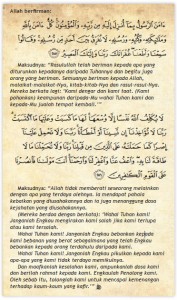 Allah berfirman:
ءَامَنَ الرَّسُولُ بِمَا أُنزِلَ إِلَيْهِ مِن رَّبِّهِ وَالْمُؤْمِنُونَ كُلٌّ ءَامَنَ
بِاللَّهِ وَمَلَائِكَتِهِ وَكُتُبِهِ وَرُسُلِهِ لَا نُفَرِّقُ بَيْنَ أَحَدٍ مِّن رُّسُلِهِ وَقَالُوا
سَمِعْنَا وَأَطَعْنَا غُفْرَانَكَ رَبَّنَا وَإِلَيْكَ الْمَصِيرُ
Maksudnya: "Rasulullah telah beriman kepada apa yang
diturunkan kepadanya daripada Tuhannya dan begitu juga
orang yang beriman. Semuanya beriman kepada Allah,
malaikat-malaikat-Nya, kitab-kitab-Nya dan rasul-rasul-Nya.
Mereka berkata lagi: 'Kami dengar dan kami taat. (Kami
pohonkan) keampunan daripada-Mu wahai Tuhan kami dan
kepada-Mu jualah tempat kembali.'"
لَا يُكَلِّفُ اللَّهُ نَفْسًا إِلَّا وُسْعَهَا لَهَا مَا كَسَبَتْ وَعَلَيْهَا مَا اكْتَسَبَتْ
رَبَّنَا لَا تُؤَاخِذْنَا إِن نَّسِينَا أَوْ أَخْطَأْنَا رَبَّنَا وَلَا تَحْمِلْ عَلَيْنَا إِصْرًا
Maksudnya: "Allah tidak memberati seseorang melainkan
dengan apa yang terdaya olehnya. Ia mendapat pahala
kebaikan yang diusahakannya dan ia juga menanggung dosa
kejahatan yang diusahakannya.
(Mereka berdoa dengan berkata): 'Wahai Tuhan kami!
Janganlah Engkau mengirakan kami salah jika kami terlupa
atau kami tersalah.
Wahai Tuhan kami! Janganlah Engkau bebankan kepada
kami bebanan yang berat sebagaimana yang telah Engkau
bebankan kepada orang terdahulu daripada kami.
Wahai Tuhan kami! Janganlah Engkau pikulkan kepada
kami apa yang kami tidak terdaya memikulnya.
Dan maafkanlah kesalahan kami, ampunkanlah dosa kami
dan berilah rahmat kepada kami. Engkaulah Penolong kami.
Oleh sebab itu, tolonglah kami untuk mencapai kemenangan
terhadap kaum-kaum yang kafir.'"